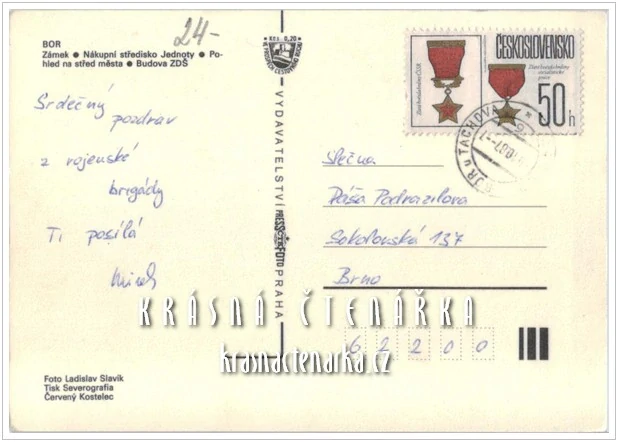 24-
BOR
Zámek ● Nákupní středisko Jednoty ● Po-
hled na střed města ● Budova ZDŠ
Srdečný
pozdrav
z vojenské
brigády
Ti posílá
Mirek
Foto Ladislav Slavík
Tisk Severografia
Červený Kostelec
Kčs 0,20
VYDAVATELSTVÍ PRESSFOTO PRAHA
ČESKOSLOVENSKO
50 h
BOR U TACHOVA
Slečna
Dáša Podrazilova
Sokolovská 137
Brno
62200
KRÁSNÁ ČTENÁŘKA
krasnactenarka.cz